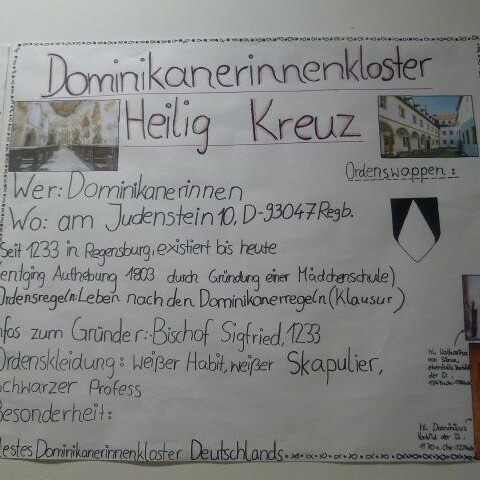 Dominikanerinnenkloster
Heilig Kreuz
Ordenswappen:
Wer: Dominikanerinnen
Wo: am Judenstein 10, D-93047 Regb.
Seit 1233 in Regensburg, existiert bis heute
(entging Aufhebung 1803 durch Gründung einer Mädchenschule)
Ordensregeln: Leben nach den Dominikanerregeln (Klausur)
nfos zum Gründer: Bischof Sigfried, 1233
Ordenskleidung: weißer Habit, weißer Skapulier,
schwarzer Profess
Besonderheit:
lestes Dominikanerinnenkloster Deutschlands
hl. Katharina
von Siena,
ebenfalls Vorbild
der D.,
hl. Dominikus
Vorbild der D.,